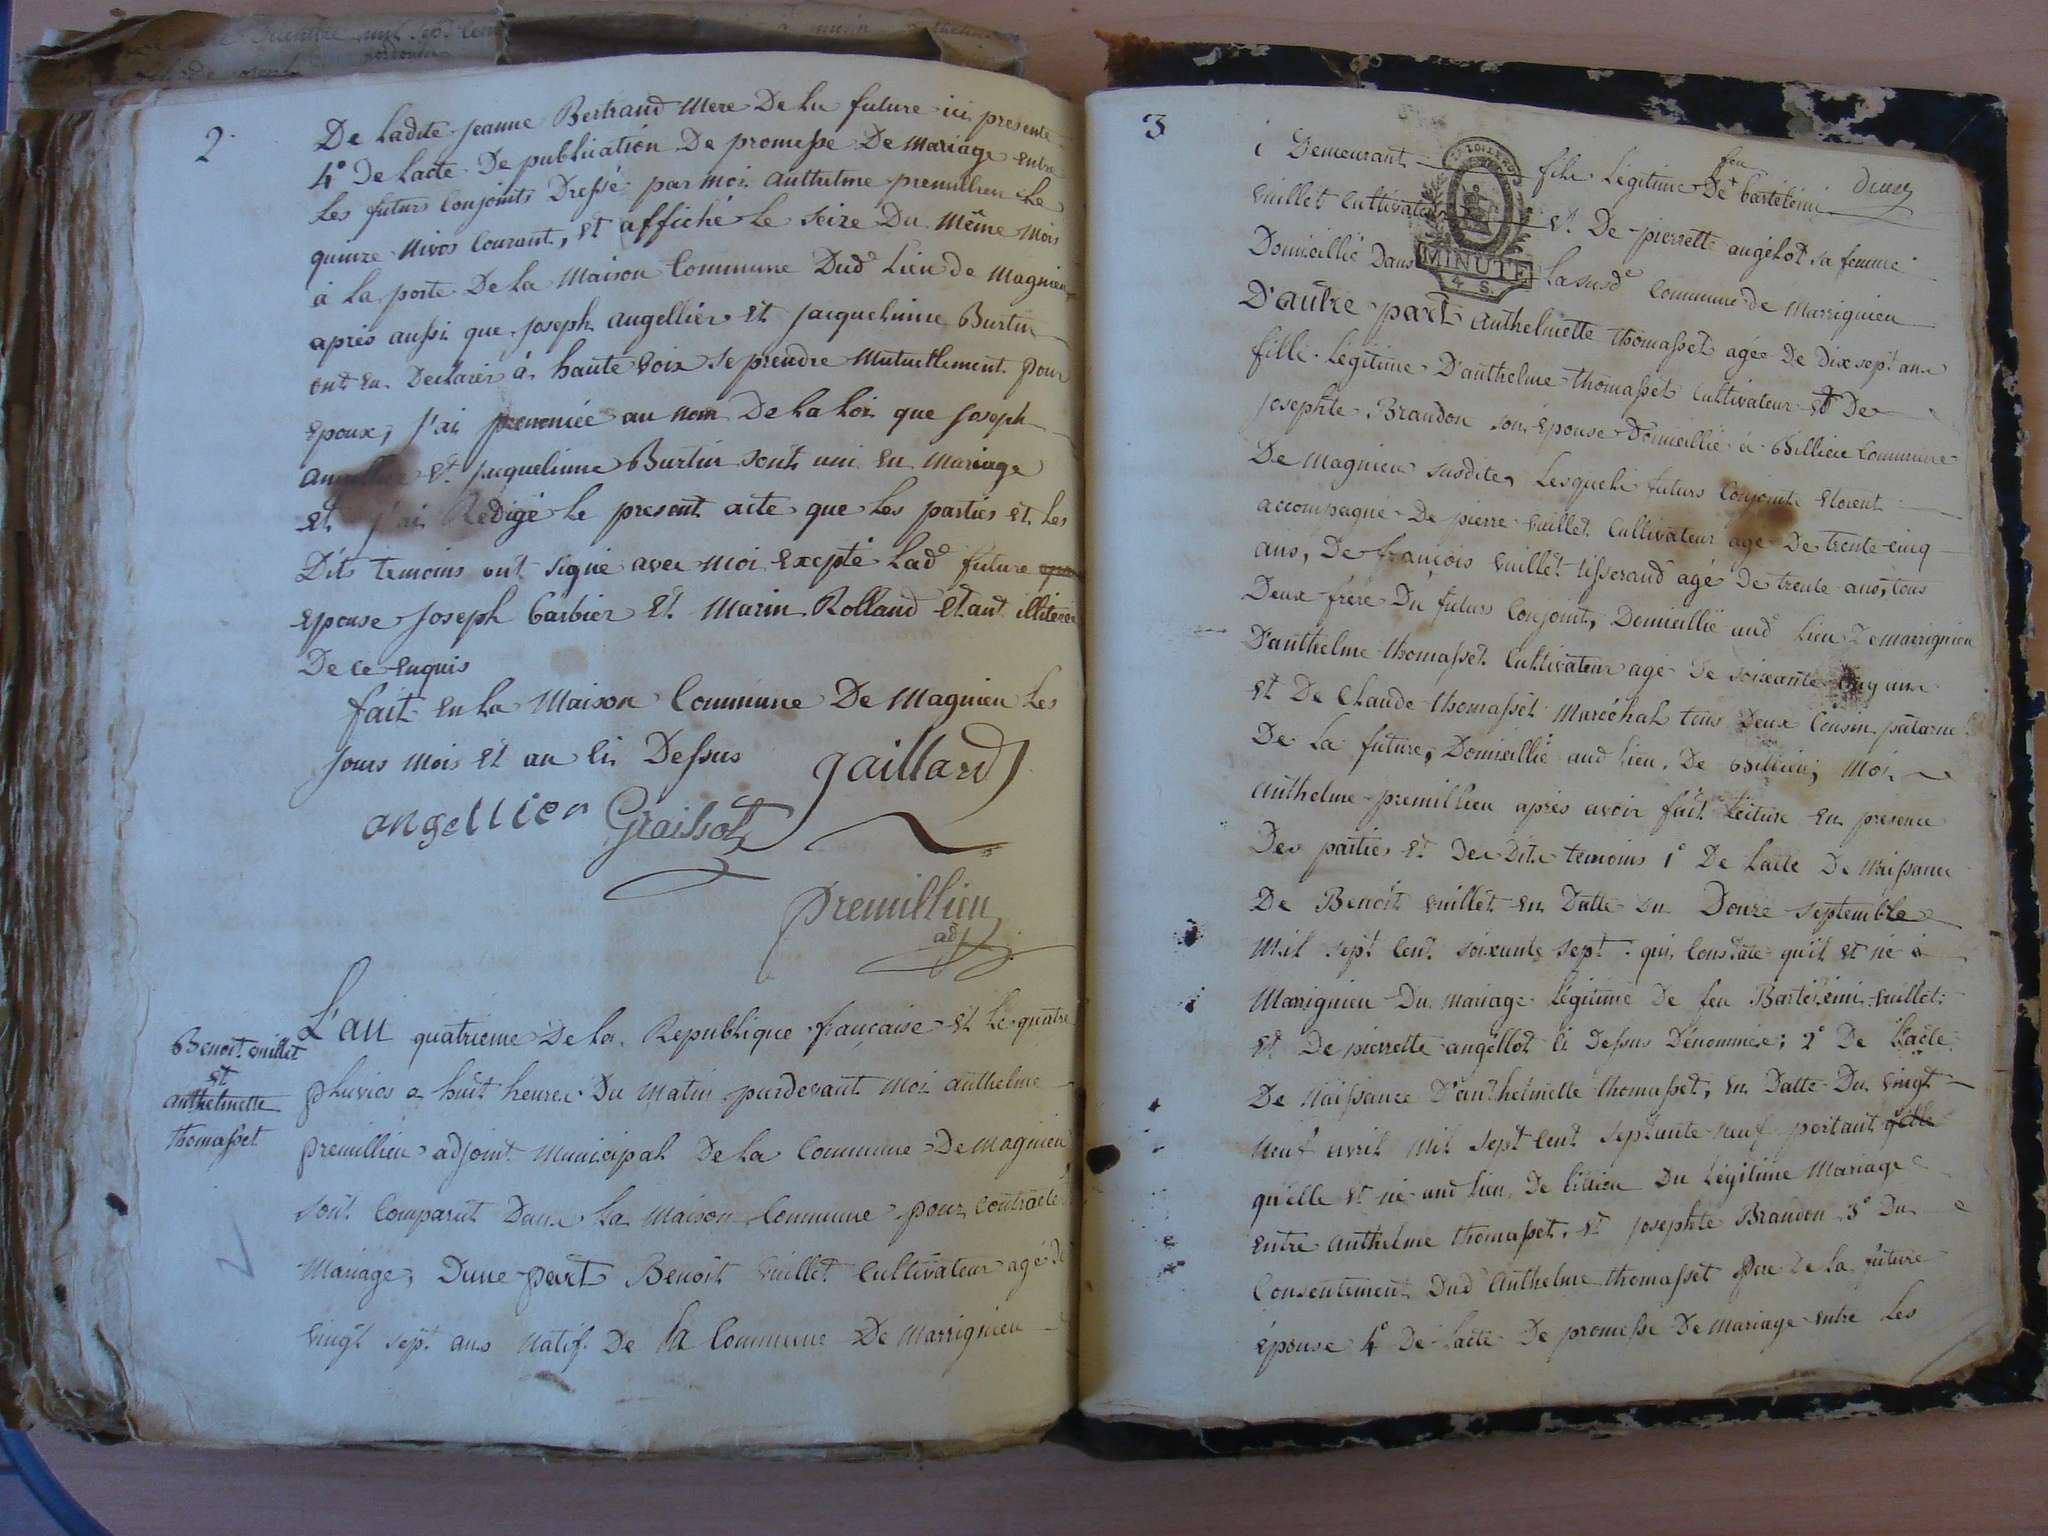 2.
De ladite jeanne Bertrand mere De la future ici presente
4° De lacte De publication De promesse De mariage entre
Les futurs Conjoints Dressé par moi anthelme premillieu le
quinze nivos Courant, et affiché le seize Du même mois
à la porte De la maison Commune Dud° lieu de magnieu
après aussi que joseph angellier et jacquelinne Burtin
ont eu Declarér à haute voix se prendre mutuellement pour
epoux, j'ai prononcée au nom De la loi que joseph
angellier et jacquelinne Burtin sont uni en mariage
et j'ai Redigé le present acte que les parties et les
Dits temoins ont signé avec moi excepté lad° future
epouse joseph Carbier et marin Rolland etant illiterer
De ce enquis
fait en la maison Commune De magnieu les
jours mois et an ci Dessus
gaillard
angellier
premillieu
adj
Benoit vuillet
et
anthelmette
thomasset
L'an quatrieme De la Republique française et le quatre
pluvios a huit heures Du matin pardevant moi anthelme
premillieu adjoint municipal De la Commune De magnieu
sont Comparut Dans la maison Commune pour Contracter
mariage, Dune part Benoit vuillet Cultivateur agé de
vingt sept ans natif De la Commune De marrignieu
3
i Demeurant fils legitime De feu bartelemi
vuillet Cultivateur et De pierrette angelot sa femme
MINUTE
4 S.
Domicillié Dans la susd° Commune de marrignieu
D'autre part anthelmette thomasset agée De Dix sept ans
fille legitime D'anthelme thomasset Cultivateur et De
josephte Brandon son epouse Domicillié à Billieu Commune
De magnieu susdite, lesquels futurs Conjoints etoient
accompagné De pierre vuillet Cultivateur agé De trente cinq
ans, De françois vuillet tisserand agé De trente ans, tous
Deux frére Du futurs Conjoint, Domicillié aud° lieu De marrignieu
D'anthelme thomasset Cultivateur agé De soixante cinq ans
et De Claude thomasset maréchal tous Deux Cousin paterne
De la future, Domicillié aud lieu De Billieu; moi
anthelme premillieu après avoir fait lecture en presence
Des parties et Des Dits temoins 1° De lacte De naissance
De Benoit vuillet en Datte Du Douze septembre
mil sept Cent soixante sept qui Constate qu'il et né à
Marrignieu Du mariage legitime De feu Bartelemi vuillet
et De pierrette angellot ci Dessus Dénommée; 2° De l'acte
De naissance D'anthelmette thomasset, en Datte Du vingt
neuf avril mil sept Cent septante neuf portant
qu'elle et né aud lieu De billieu Du legitime mariage
entre anthelme thomasset, et josephte Brandon 3° Du
Consentement Dud° anthelme thomasset pere De la future
épouse 4° De lacte De promesse De mariage entre les